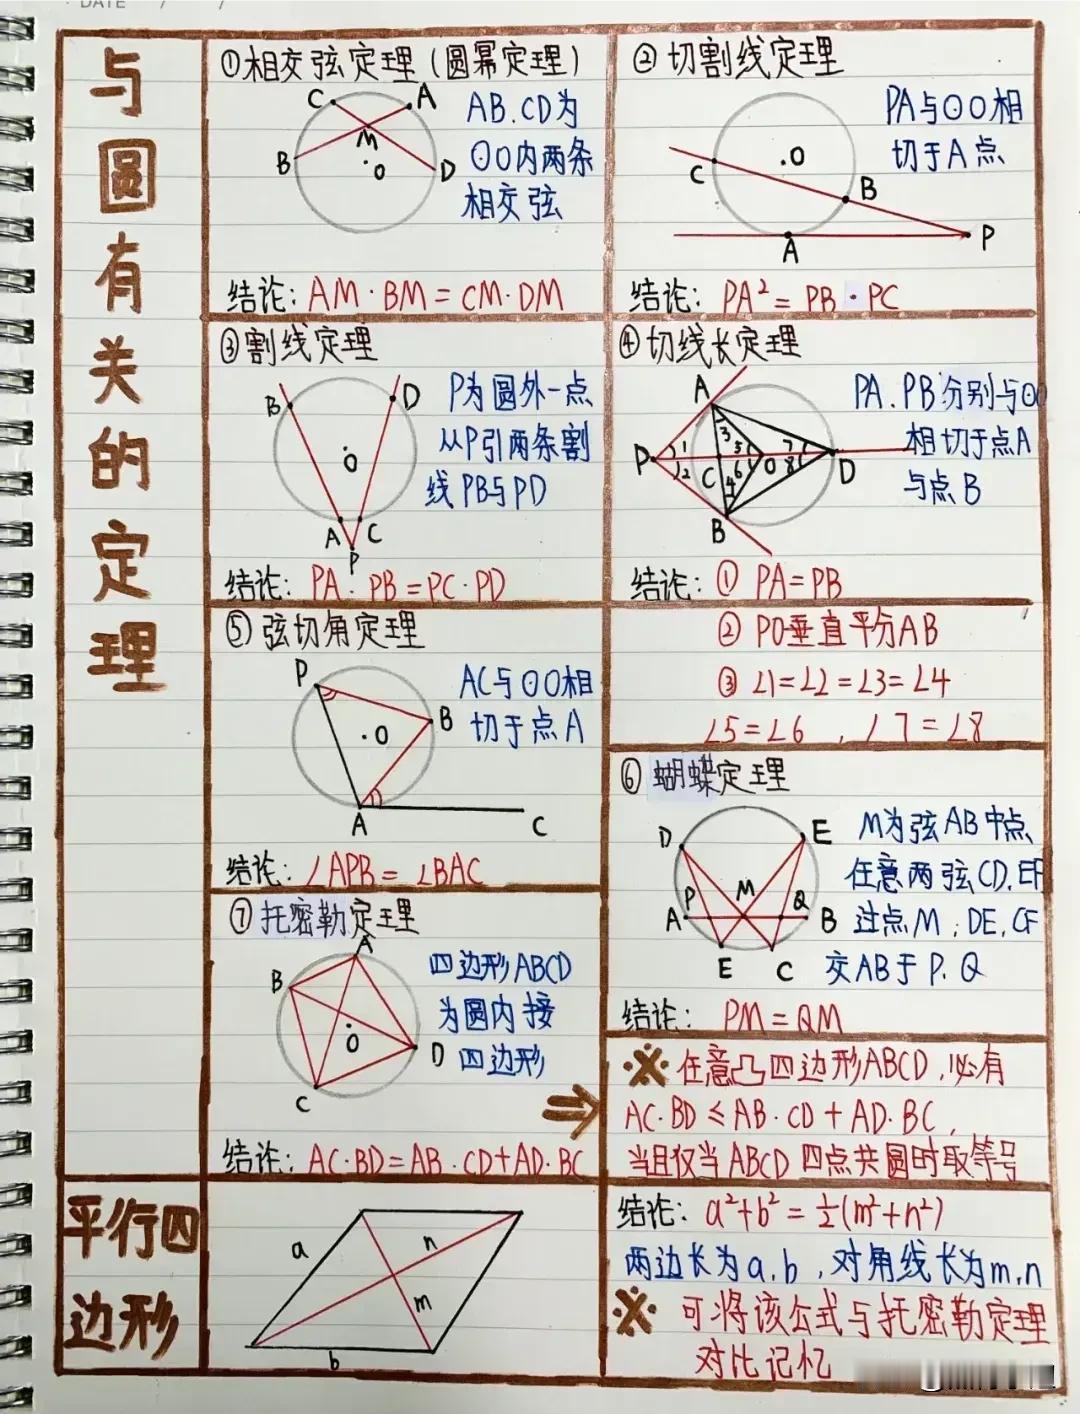 DATE / /
与圆有关的定理
①相交弦定理(圆幂定理)
C
A
B
M
O
D
AB.CD为
⊙O内两条
相交弦
结论: AM·BM=CM·DM
②切割线定理
O
C
B
A
P
PA与⊙O相
切于A点
结论: PA²=PB·PC
③割线定理
B
D
O
A
C
P
P为圆外一点
从P引两条割
线PB与PD
结论: PA·PB=PC·PD
④切线长定理
A
P
1
2
3
4
5
6
7
8
C
O
D
B
PA.PB分别与⊙O
相切于点A
与点B
结论: ① PA=PB
② PO垂直平分AB
③ ∠1=∠2=∠3=∠4
∠5=∠6 , ∠7=∠8
⑤弦切角定理
P
B
O
A
C
AC与⊙O相
切于点A
结论: ∠APB=∠BAC
⑥蝴蝶定理
D
E
A
P
M
Q
B
E
C
M为弦AB中点
任意两弦CD.EF
过点M;DE.CF
交AB于P.Q
结论: PM=QM
⑦托密勒定理
A
B
O
D
C
四边形ABCD
为圆内接
四边形
结论: AC·BD=AB·CD+AD·BC
※任意凸四边形ABCD,必有
AC·BD≤AB·CD+AD·BC,
当且仅当ABCD四点共圆时取等号
平行四
边形
a
n
m
b
结论: a²+b²=½(m²+n²)
两边长为a,b,对角线长为m,n
※ 可将该公式与托密勒定理
对比记忆